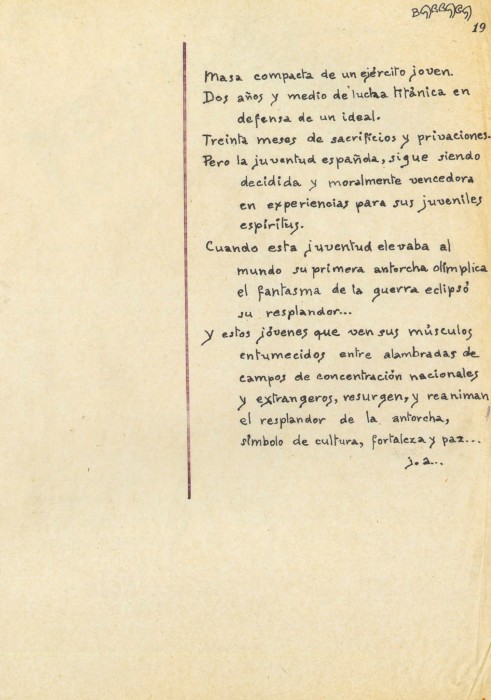 19
Masa compacta de un ejército joven.
Dos años y medio de luchaa titánica en
defensa de un ideal.
Treinta meses de sacrificios y privaciones.
Pero la juventud española, sigue siendo
decidida y moralmente vencedora
en experiencias para sus juveniles
espíritus.
Cuando esta juventud elevaba al
mundo su primera antorcha olímplica
el fantasma de la guerra eclipsó
su resplandor...
Y estos jóvenes que ven sus músculos
entumecidos entre alambradas de
campos de concentración nacionales
y extrangeros, resurgen, y reaniman
el resplandor de la antorcha,
símbolo de cultura, fortaleza y paz...
j.a...